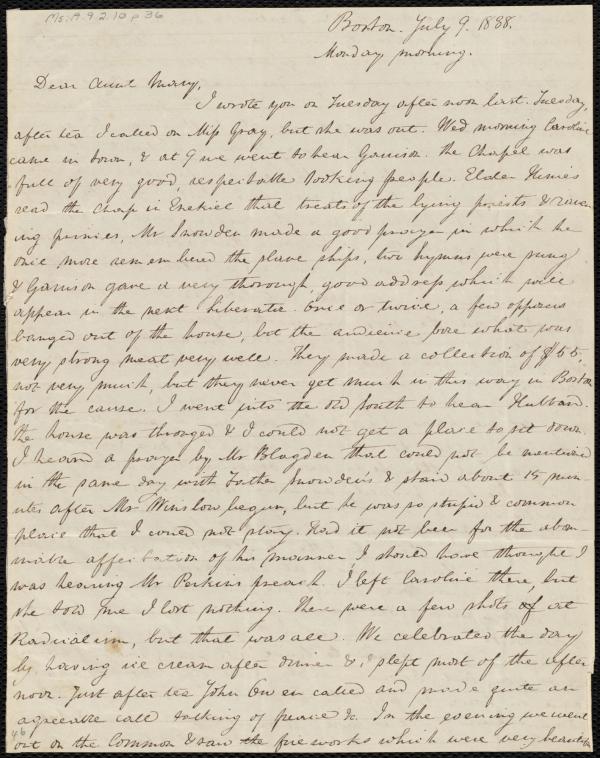 Ms. A. 9. 2. 10 p 36
Boston. July 9. 1838.
Monday morning.
Dear Aunt Mary,
I wrote you on Tuesday after noon last. Tuesday,
after tea I called on Miss Gray, but she was out. Wed morning Caroline
came in town, & at 9 we went to hear Garrison. The Chapel was
full of very good, respectable looking people. Elder Himes
read the chap in Ezekiel that treats of the lying priests & raven
ing princes, Mr Snowden made a good prayer in which he
once more remembered the slave ships, two hymns were sung
& Garrison gave a very thorough, good address which will
appear in the next Liberator. Once or twice, a few opposers
banged out of the house, but the audience bore what was
very strong meat very well. They made a collection of $55,
not very much, but they never get much in this way in Boston
for the cause. I went into the Old South to hear Hubbard.
The house was thronged & I could not get a place to sit down.
I heard a prayer by Mr Blagden that could not be mentioned
in the same day with Father Snowden's & staid about 15 min-
utes after Mr Winslow began, but he was so stupid & common
place that I could not stay. Had it not been for the abom-
inable affectation of his manner, I should have thought I
was hearing Mr Perkins preach. I left Caroline there, but
she told me I lost nothing. There were a few shots at
Radicalism, but that was all. We celebrated the day
by having ice cream after dinner & I slept most of the after
noon. Just after tea John Owen called and made quite an
agreeable call talking of peace &c. In the evening we went
out on the Common & saw the fireworks which were very beautiful
46